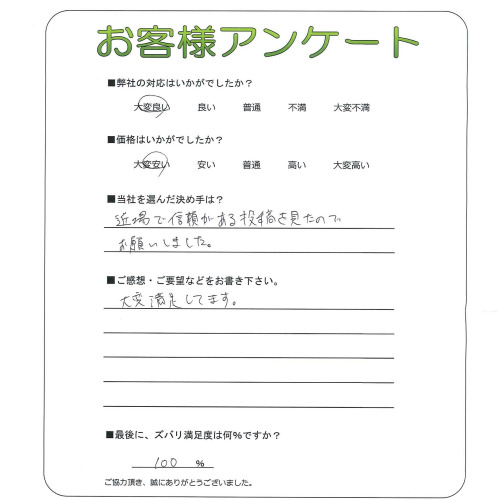 お客様アンケート
■弊社の対応はいかがでしたか？
大変良い 良い 普通 不満 大変不満
■価格はいかがでしたか？
大変安い 安い 普通 高い 大変高い
■当社を選んだ決め手は？
近場で信頼がある投稿を見たので
お願いしました。
■ご感想・ご要望などをお書き下さい。
大変満足してます。
■最後に、ズバリ満足度は何％ですか？
100 ％
ご協力頂き、誠にありがとうございました。